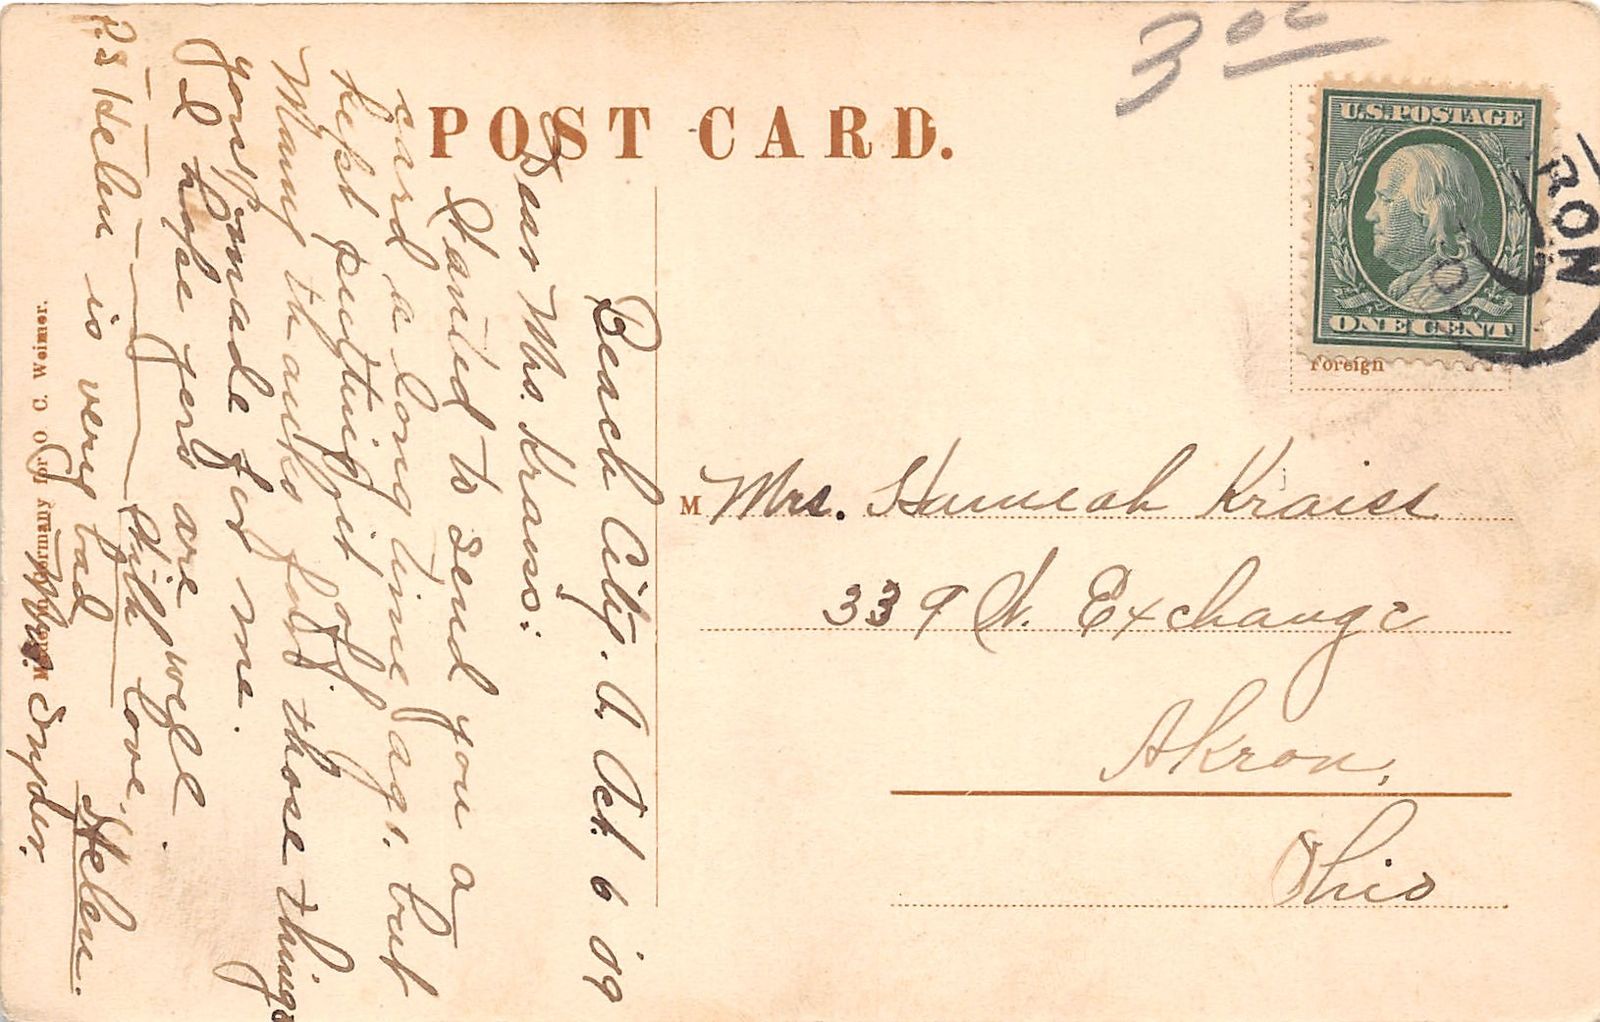 3 00
POST CARD.
U.S. POSTAGE
ONE CENT
RON
Foreign
Beach City. O. Oct. 6 '09
Dear Mrs. Krauss:
Wanted to send you a
card a long time ago. but
kept putting it off.
Many thanks for those things
you made for me.
I hope yous are well.
With love,
Helen.
P.S. Helen is very bad
Mrs. Snyder.
M Mrs. Hannah Kraiss
339 W. Exchange
Akron,
Ohio
Made in Germany for O. C. Weimer.